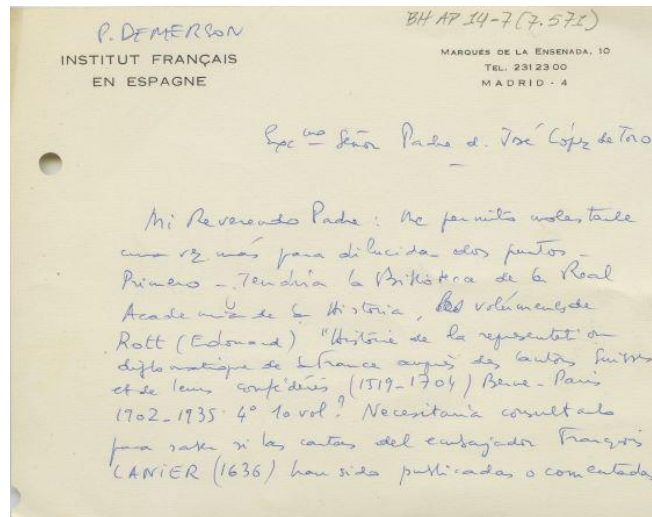 P. DEMERSON
BH AP 14-7 (7.571)
INSTITUT FRANÇAIS
EN ESPAGNE
MARQUÉS DE LA ENSENADA, 10
TEL. 231 23 00
MADRID - 4
Exc mo Señor Padre d. José López de Toro
Mi Reverendo Padre : Me permito molestarle
una vez más para dilucidar dos puntos -
Primero - Tendría la Biblioteca de la Real
Academia de la Historia, los volúmenes de
Rott (Edouard) "Histoire de la représentation
diplomatique de la France auprès des cantons Suisses
et de leurs confédérés (1519-1704) Berne - Paris
1902-1935 4º 10 vol? Necesitaría consultarlo
para saber si las cartas del embajador François
LANIER (1636) han sido publicadas o comentadas